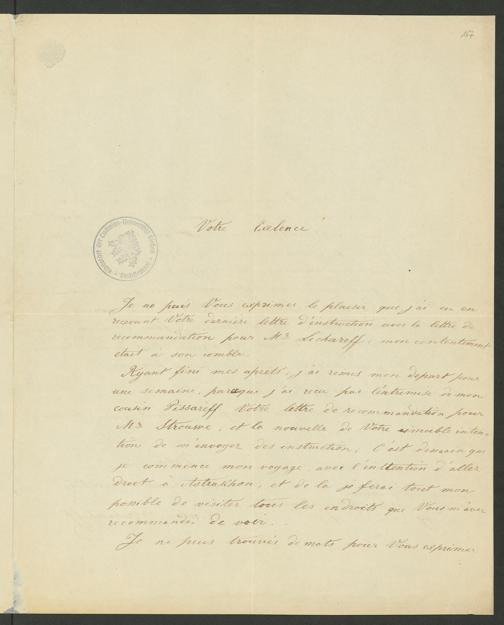 157
Votre Exlence
Je ne puis Vous exprimer le plaisir que j'ai eu en
recevant Votre dernière lettre d'instruction avec la lettre de
recommandation pour Mr. ; mon contentement
était à son comble.
Ayant fini mes aprets, j'ai remis mon depart pour
une semaine, parceque j'ai reçu par l'entremise de mon
cousin Pissareff Votre lettre de recommandation pour
Mr. Strouwe, et la nouvelle de Votre inten-
tion de m'envoyer des instruction; C'est demain que
je commence mon voyage, avec l'intention d'aller
droit à Astrakhan, et de la je ferai tout mon
possible de visiter tous les endroits que Vous m'avez
recommandé de voir.
Je ne peux trouver de mots pour Vous exprimer